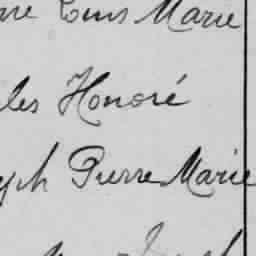 Louis Marie
les Honoré
ph Pierre Marie